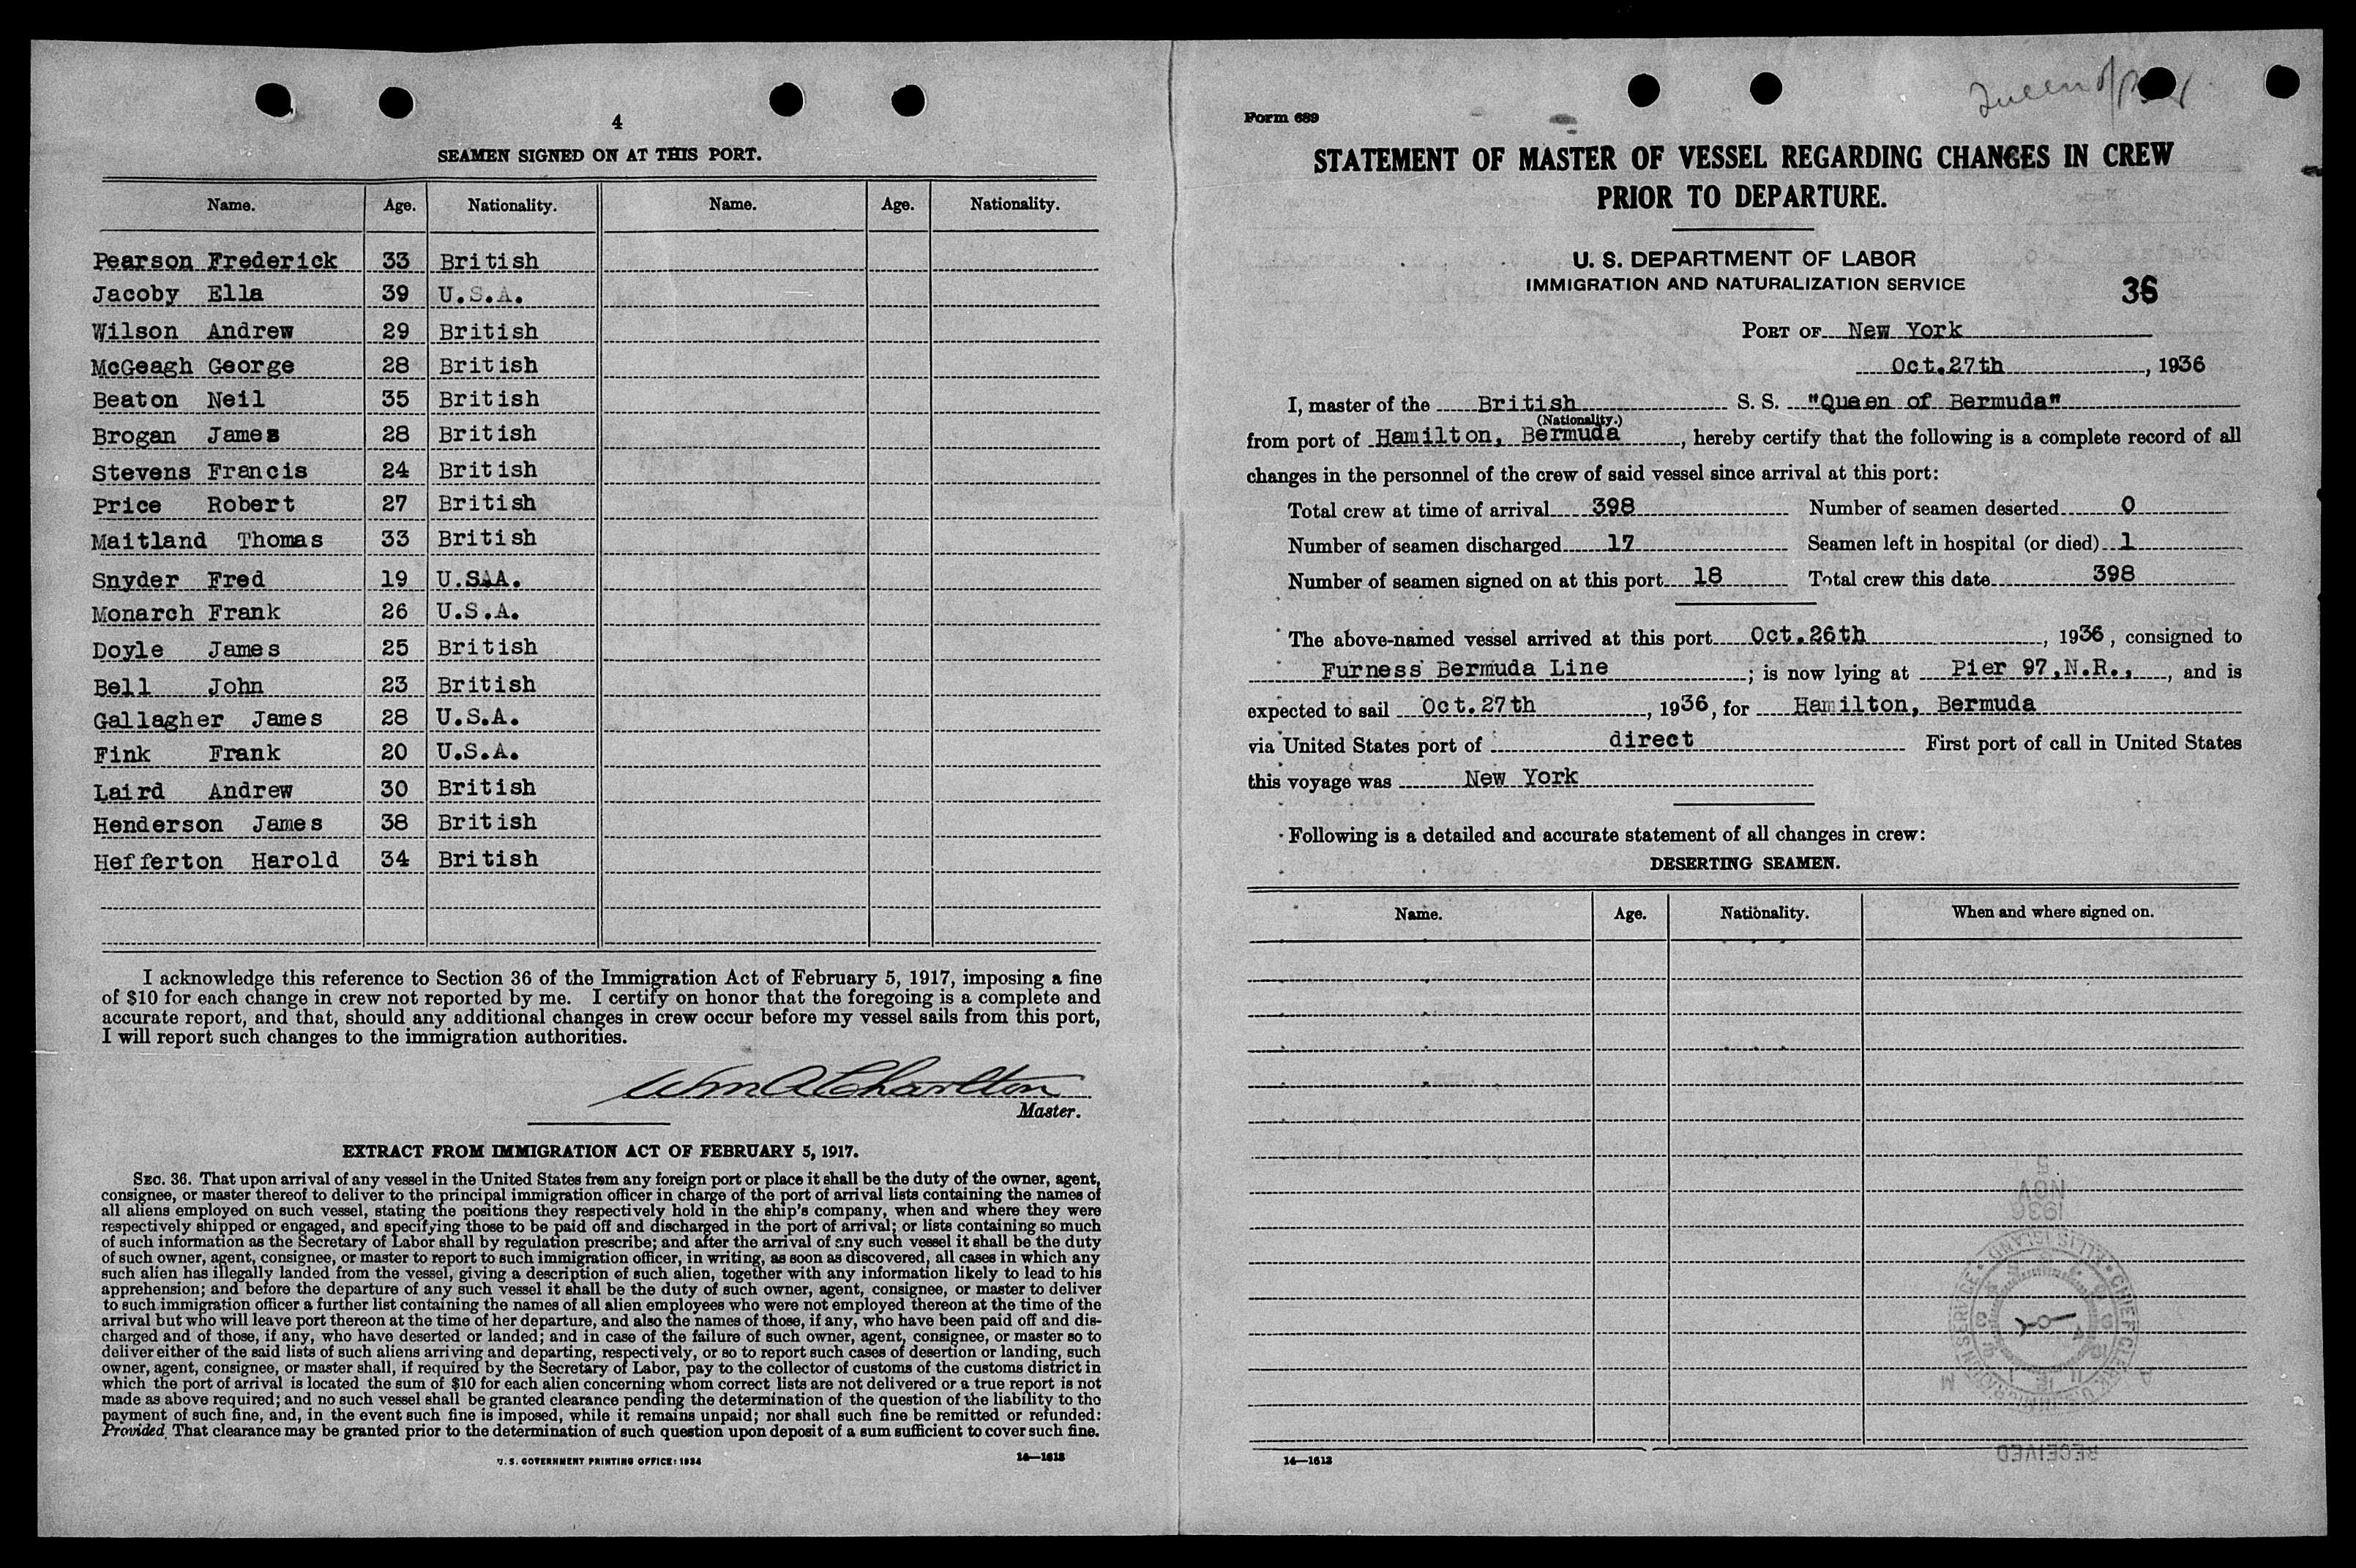 4
SEAMEN SIGNED ON AT THIS PORT.
Name. Age. Nationality. Name. Age. Nationality.
Pearson Frederick 33 British
Jacoby Ella 39 U.S.A.
Wilson Andrew 29 British
McGeagh George 28 British
Beaton Neil 35 British
Brogan James 28 British
Stevens Francis 24 British
Price Robert 27 British
Maitland Thomas 33 British
Snyder Fred 19 U.S.A.
Monarch Frank 26 U.S.A.
Doyle James 25 British
Bell John 23 British
Gallagher James 28 U.S.A.
Fink Frank 20 U.S.A.
Laird Andrew 30 British
Henderson James 38 British
Hefferton Harold 34 British
I acknowledge this reference to Section 36 of the Immigration Act of February 5, 1917, imposing a fine
of $10 for each change in crew not reported by me. I certify on honor that the foregoing is a complete and
accurate report, and that, should any additional changes in crew occur before my vessel sails from this port,
I will report such changes to the immigration authorities.
Wm A Charlton
Master.
EXTRACT FROM IMMIGRATION ACT OF FEBRUARY 5, 1917.
SEC. 36. That upon arrival of any vessel in the United States from any foreign port or place it shall be the duty of the owner, agent,
consignee, or master thereof to deliver to the principal immigration officer in charge of the port of arrival lists containing the names of
all aliens employed on such vessel, stating the positions they respectively hold in the ship's company, when and where they were
respectively shipped or engaged, and specifying those to be paid off and discharged in the port of arrival; or lists containing so much
of such information as the Secretary of Labor shall by regulation prescribe; and after the arrival of any such vessel it shall be the duty
of such owner, agent, consignee, or master to report to such immigration officer, in writing, as soon as discovered, all cases in which any
such alien has illegally landed from the vessel, giving a description of such alien, together with any information likely to lead to his
apprehension; and before the departure of any such vessel it shall be the duty of such owner, agent, consignee, or master to deliver
to such immigration officer a further list containing the names of all alien employees who were not employed thereon at the time of the
arrival but who will leave port thereon at the time of her departure, and also the names of those, if any, who have been paid off and dis-
charged and of those, if any, who have deserted or landed; and in case of the failure of such owner, agent, consignee, or master so to
deliver either of the said lists of such aliens arriving and departing, respectively, or so to report such cases of desertion or landing, such
owner, agent, consignee, or master shall, if required by the Secretary of Labor, pay to the collector of customs of the customs district in
which the port of arrival is located the sum of $10 for each alien concerning whom correct lists are not delivered or a true report is not
made as above required; and no such vessel shall be granted clearance pending the determination of the question of the liability to the
payment of such fine, and, in the event such fine is imposed, while it remains unpaid; nor shall such fine be remitted or refunded:
Provided, That clearance may be granted prior to the determination of such question upon deposit of a sum sufficient to cover such fine.
U. S. GOVERNMENT PRINTING OFFICE: 1934 14—1613
Queen of
Form 689
STATEMENT OF MASTER OF VESSEL REGARDING CHANGES IN CREW
PRIOR TO DEPARTURE.
U. S. DEPARTMENT OF LABOR
IMMIGRATION AND NATURALIZATION SERVICE
36
PORT OF New York
Oct.27th, 1936
I, master of the British S. S. "Queen of Bermuda"
(Nationality.)
from port of Hamilton, Bermuda, hereby certify that the following is a complete record of all
changes in the personnel of the crew of said vessel since arrival at this port:
Total crew at time of arrival 398 Number of seamen deserted 0
Number of seamen discharged 17 Seamen left in hospital (or died) 1
Number of seamen signed on at this port 18 Total crew this date 398
The above-named vessel arrived at this port Oct.26th, 1936, consigned to
Furness Bermuda Line; is now lying at Pier 97,N.R., and is
expected to sail Oct.27th, 1936, for Hamilton, Bermuda
via United States port of direct First port of call in United States
this voyage was New York
Following is a detailed and accurate statement of all changes in crew:
DESERTING SEAMEN.
Name. Age. Nationality. When and where signed on.
5
NOV
1936
RECEIVED
14—1613